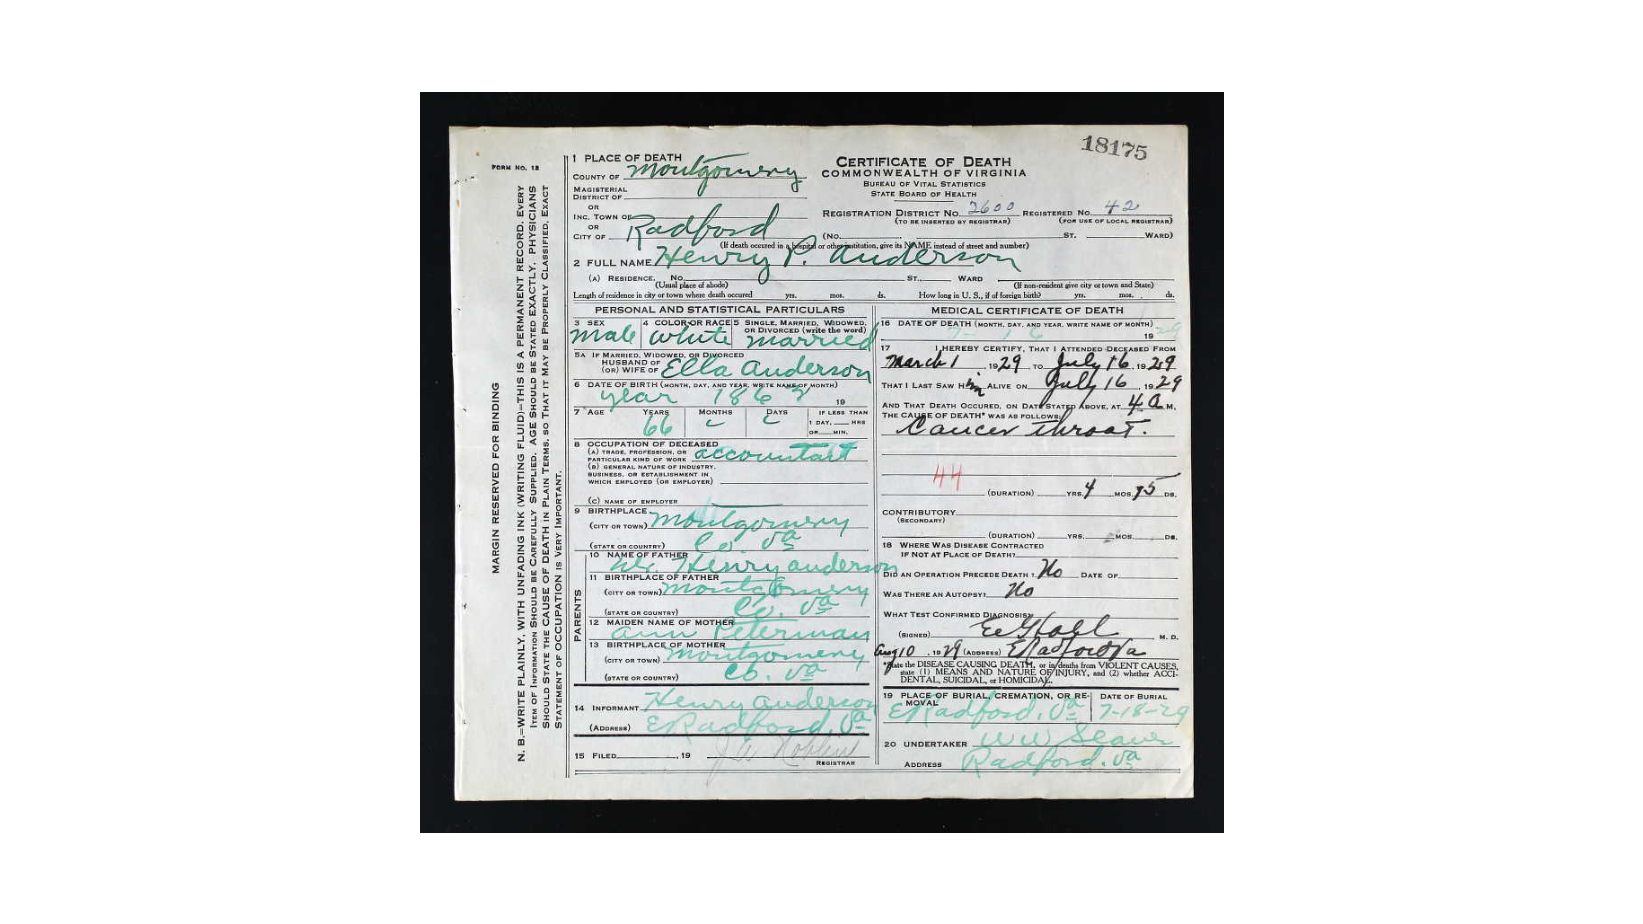 18175
FORM NO. 12
1 PLACE OF DEATH
COUNTY OF Montgomery
MAGISTERIAL
DISTRICT OF
OR
INC. TOWN OF
OR
CITY OF Radford
CERTIFICATE OF DEATH
COMMONWEALTH OF VIRGINIA
BUREAU OF VITAL STATISTICS
STATE BOARD OF HEALTH
REGISTRATION DISTRICT NO. 2600 REGISTERED NO. 42
(TO BE INSERTED BY REGISTRAR) (FOR USE OF LOCAL REGISTRAR)
(No. ST. WARD)
(If death occured in a hospital or other institution, give its NAME instead of street and number)
2 FULL NAME Henry P. Anderson
(A) RESIDENCE. No. ST., WARD
(Usual place of abode) (If non-resident give city or town and State)
Length of residence in city or town where death occured yrs. mos. ds. How long in U. S., if of foreign birth? yrs. mos. ds.
PERSONAL AND STATISTICAL PARTICULARS
3 SEX 4 COLOR OR RACE 5 SINGLE, MARRIED, WIDOWED,
OR DIVORCED (write the word)
male white married
5A IF MARRIED, WIDOWED, OR DIVORCED
HUSBAND OF
(OR) WIFE OF Ella Anderson
6 DATE OF BIRTH (MONTH, DAY, AND YEAR. WRITE NAME OF MONTH)
year 186 19
7 AGE YEARS MONTHS DAYS IF LESS THAN
1 DAY, HRS
OR MIN.
66
8 OCCUPATION OF DECEASED
(A) TRADE, PROFESSION, OR
PARTICULAR KIND OF WORK accountant
(B) GENERAL NATURE OF INDUSTRY,
BUSINESS, OR ESTABLISHMENT IN
WHICH EMPLOYED (OR EMPLOYER)
(C) NAME OF EMPLOYER
9 BIRTHPLACE
(CITY OR TOWN) Montgomery
(STATE OR COUNTRY) Co. Va
PARENTS
10 NAME OF FATHER Henry Anderson
11 BIRTHPLACE OF FATHER
(CITY OR TOWN) Montgomery
(STATE OR COUNTRY) Co. Va
12 MAIDEN NAME OF MOTHER
Ann Peterman
13 BIRTHPLACE OF MOTHER
(CITY OR TOWN) Montgomery
(STATE OR COUNTRY) Co. Va
14 INFORMANT Henry Anderson
(ADDRESS) E Radford, Va
15 FILED , 19
REGISTRAR
MEDICAL CERTIFICATE OF DEATH
16 DATE OF DEATH (MONTH, DAY, AND YEAR. WRITE NAME OF MONTH)
7- 16 19 29
17 I HEREBY CERTIFY, THAT I ATTENDED DECEASED FROM
March 1 , 1929, TO July 16, 1929
THAT I LAST SAW Him ALIVE ON July 16, 1929
AND THAT DEATH OCCURED, ON DATE STATED ABOVE, AT 4 a M.
THE CAUSE OF DEATH* WAS AS FOLLOWS:
Cancer throat.
44
(DURATION) YRS. 4 MOS. 15 DS.
CONTRIBUTORY
(SECONDARY)
(DURATION) YRS. MOS. DS.
18 WHERE WAS DISEASE CONTRACTED
IF NOT AT PLACE OF DEATH?
DID AN OPERATION PRECEDE DEATH? No DATE OF
WAS THERE AN AUTOPSY? No
WHAT TEST CONFIRMED DIAGNOSIS?
(SIGNED) M. D.
Aug 10, 1929 (ADDRESS) E Radford Va
*State the DISEASE CAUSING DEATH, or in deaths from VIOLENT CAUSES,
state (1) MEANS AND NATURE OF INJURY, and (2) whether ACCI-
DENTAL, SUICIDAL, or HOMICIDAL.
19 PLACE OF BURIAL, CREMATION, OR RE-
MOVAL DATE OF BURIAL
E Radford, Va 7-18-29
20 UNDERTAKER W W
ADDRESS Radford, Va
MARGIN RESERVED FOR BINDING
N. B.—WRITE PLAINLY, WITH UNFADING INK (WRITING FLUID)—THIS IS A PERMANENT RECORD. EVERY
ITEM OF INFORMATION SHOULD BE CAREFULLY SUPPLIED. AGE SHOULD BE STATED EXACTLY, PHYSICIANS
SHOULD STATE THE CAUSE OF DEATH IN PLAIN TERMS, SO THAT IT MAY BE PROPERLY CLASSIFIED. EXACT
STATEMENT OF OCCUPATION IS VERY IMPORTANT.